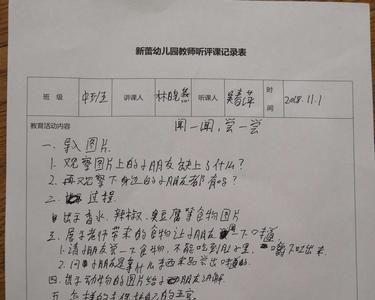 新蕾幼儿园教师听评课记录表
班 级 中班 讲课人 林晓燕 听课人 吴春萍 时间 2018.11.1
教育活动内容
闻一闻，尝一尝
一、导入图片
1.观察图片上的小朋友缺上了什么？
2.再观察下身边的小朋友都有吗？
二、过程
出示香水、辣椒、臭豆腐等食物图片
三、展示老师带来的食物让小朋友 一下味道
1.请小朋友尝一下食物，不能吃到肚里， 吐出来
2.问小朋友是 东西来品尝出味道的
四、出示动物的图片给小朋友讲解
五、怎样的去保护自己的五官